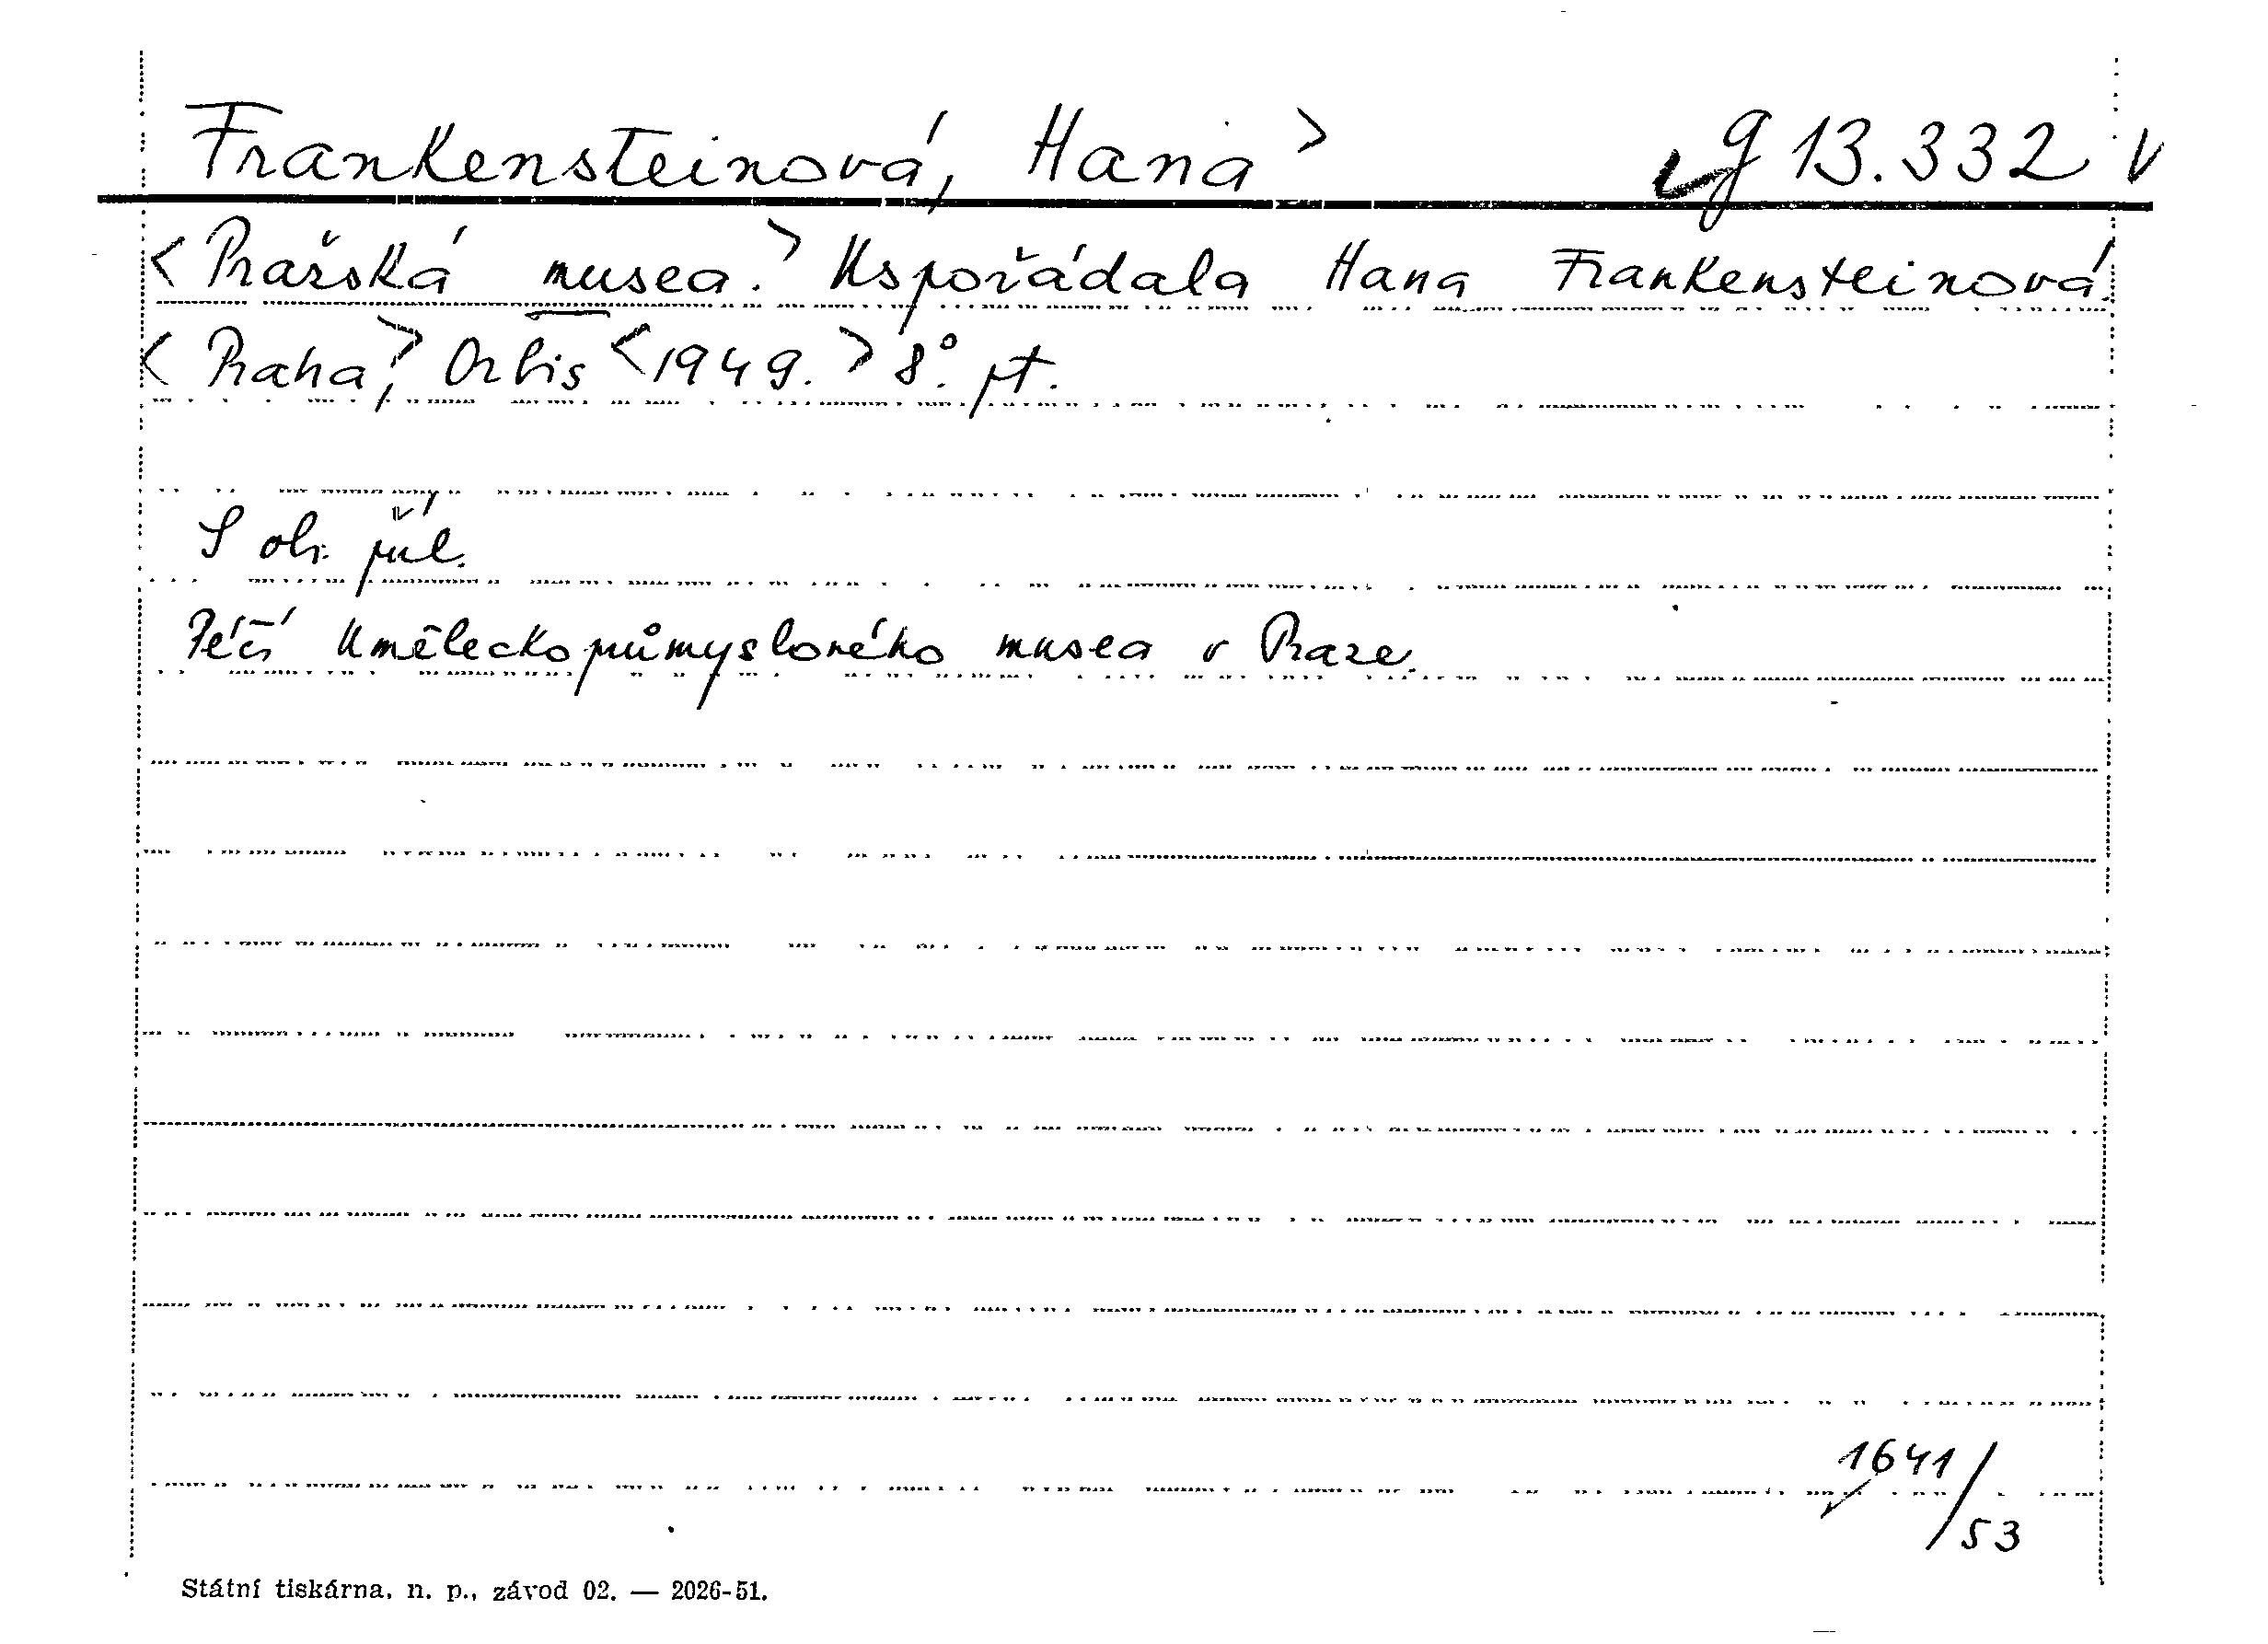 Frankensteinová, Hana > g 13.332 v
<Pražská musea.> Uspořádala Hana Frankensteinová.
<Praha>, Orbis <1949.> 8°. pt.
S obr. příl.
Péčí Uměleckoprůmyslového musea v Praze.
1641/53
Státní tiskárna, n. p., závod 02. — 2026-51.